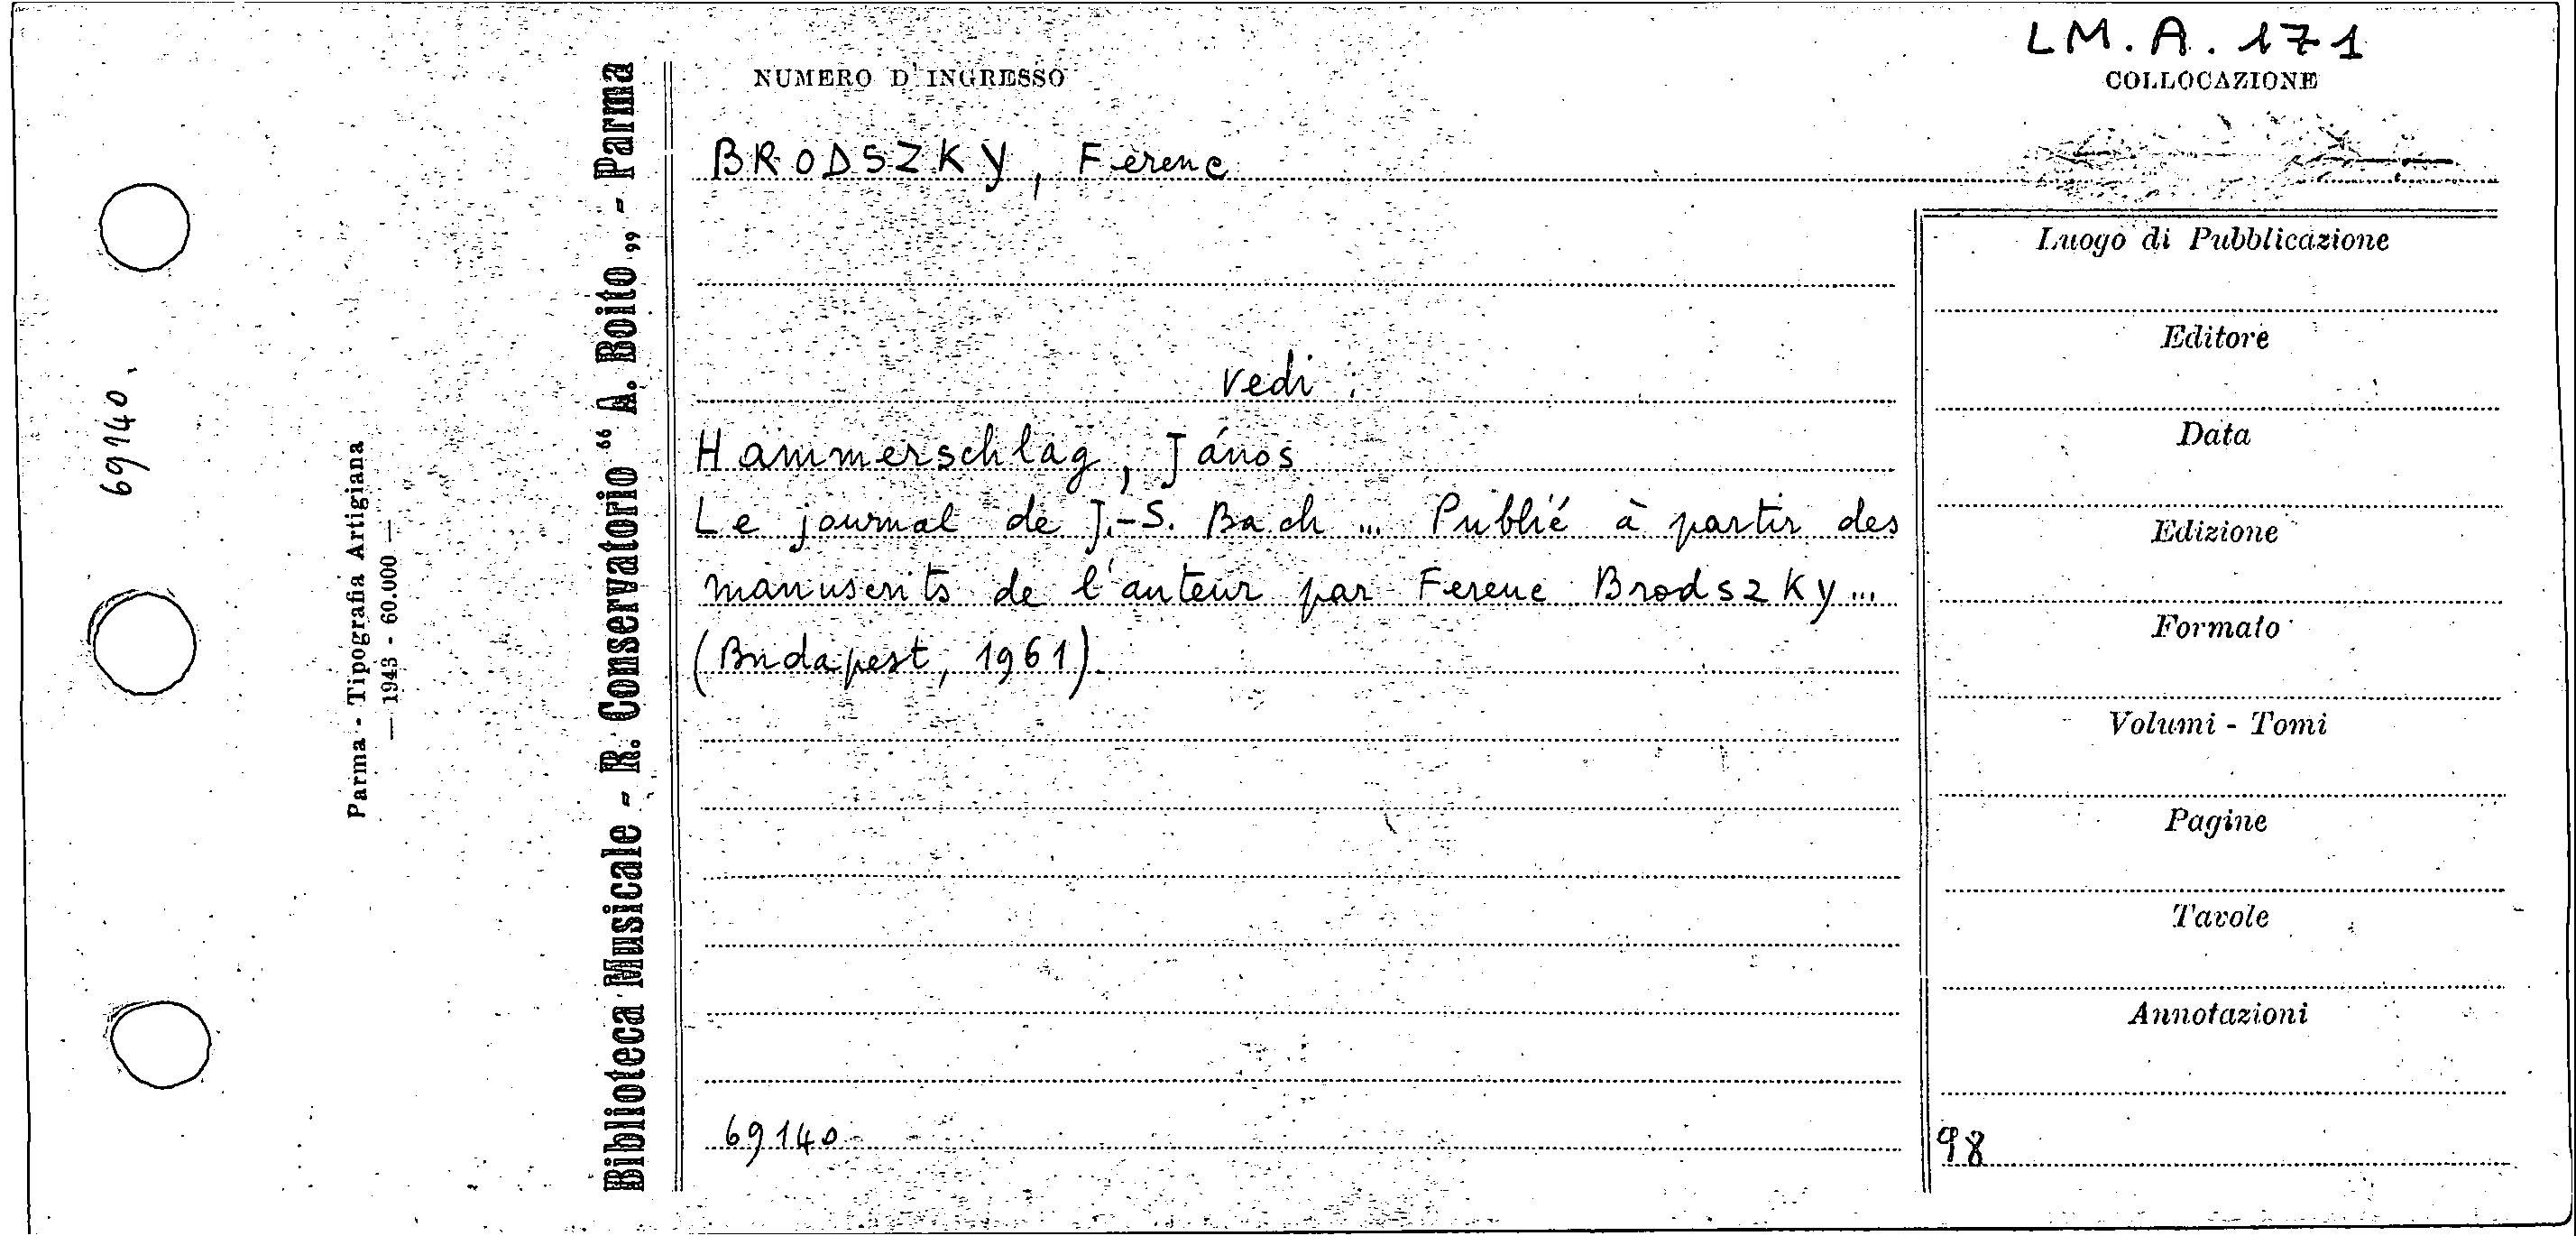 LM.A.171
NUMERO D'INGRESSO
COLLOCAZIONE
BRODSZKY, Ferenc
vedi:
Hammerschlag, János
Le journal de J.-S. Bach ... Publié à partir des
manuscrits de l'auteur par Ferenc Brodszky...
(Budapest, 1961)
69140
Luogo di Pubblicazione
Editore
Data
Edizione
Formato
Volumi - Tomi
Pagine
Tavole
Annotazioni
98
Biblioteca Musicale - R. Conservatorio “ A. Boito „ - Parma
Parma - Tipografia Artigiana
— 1943 - 60.000 —
69140.